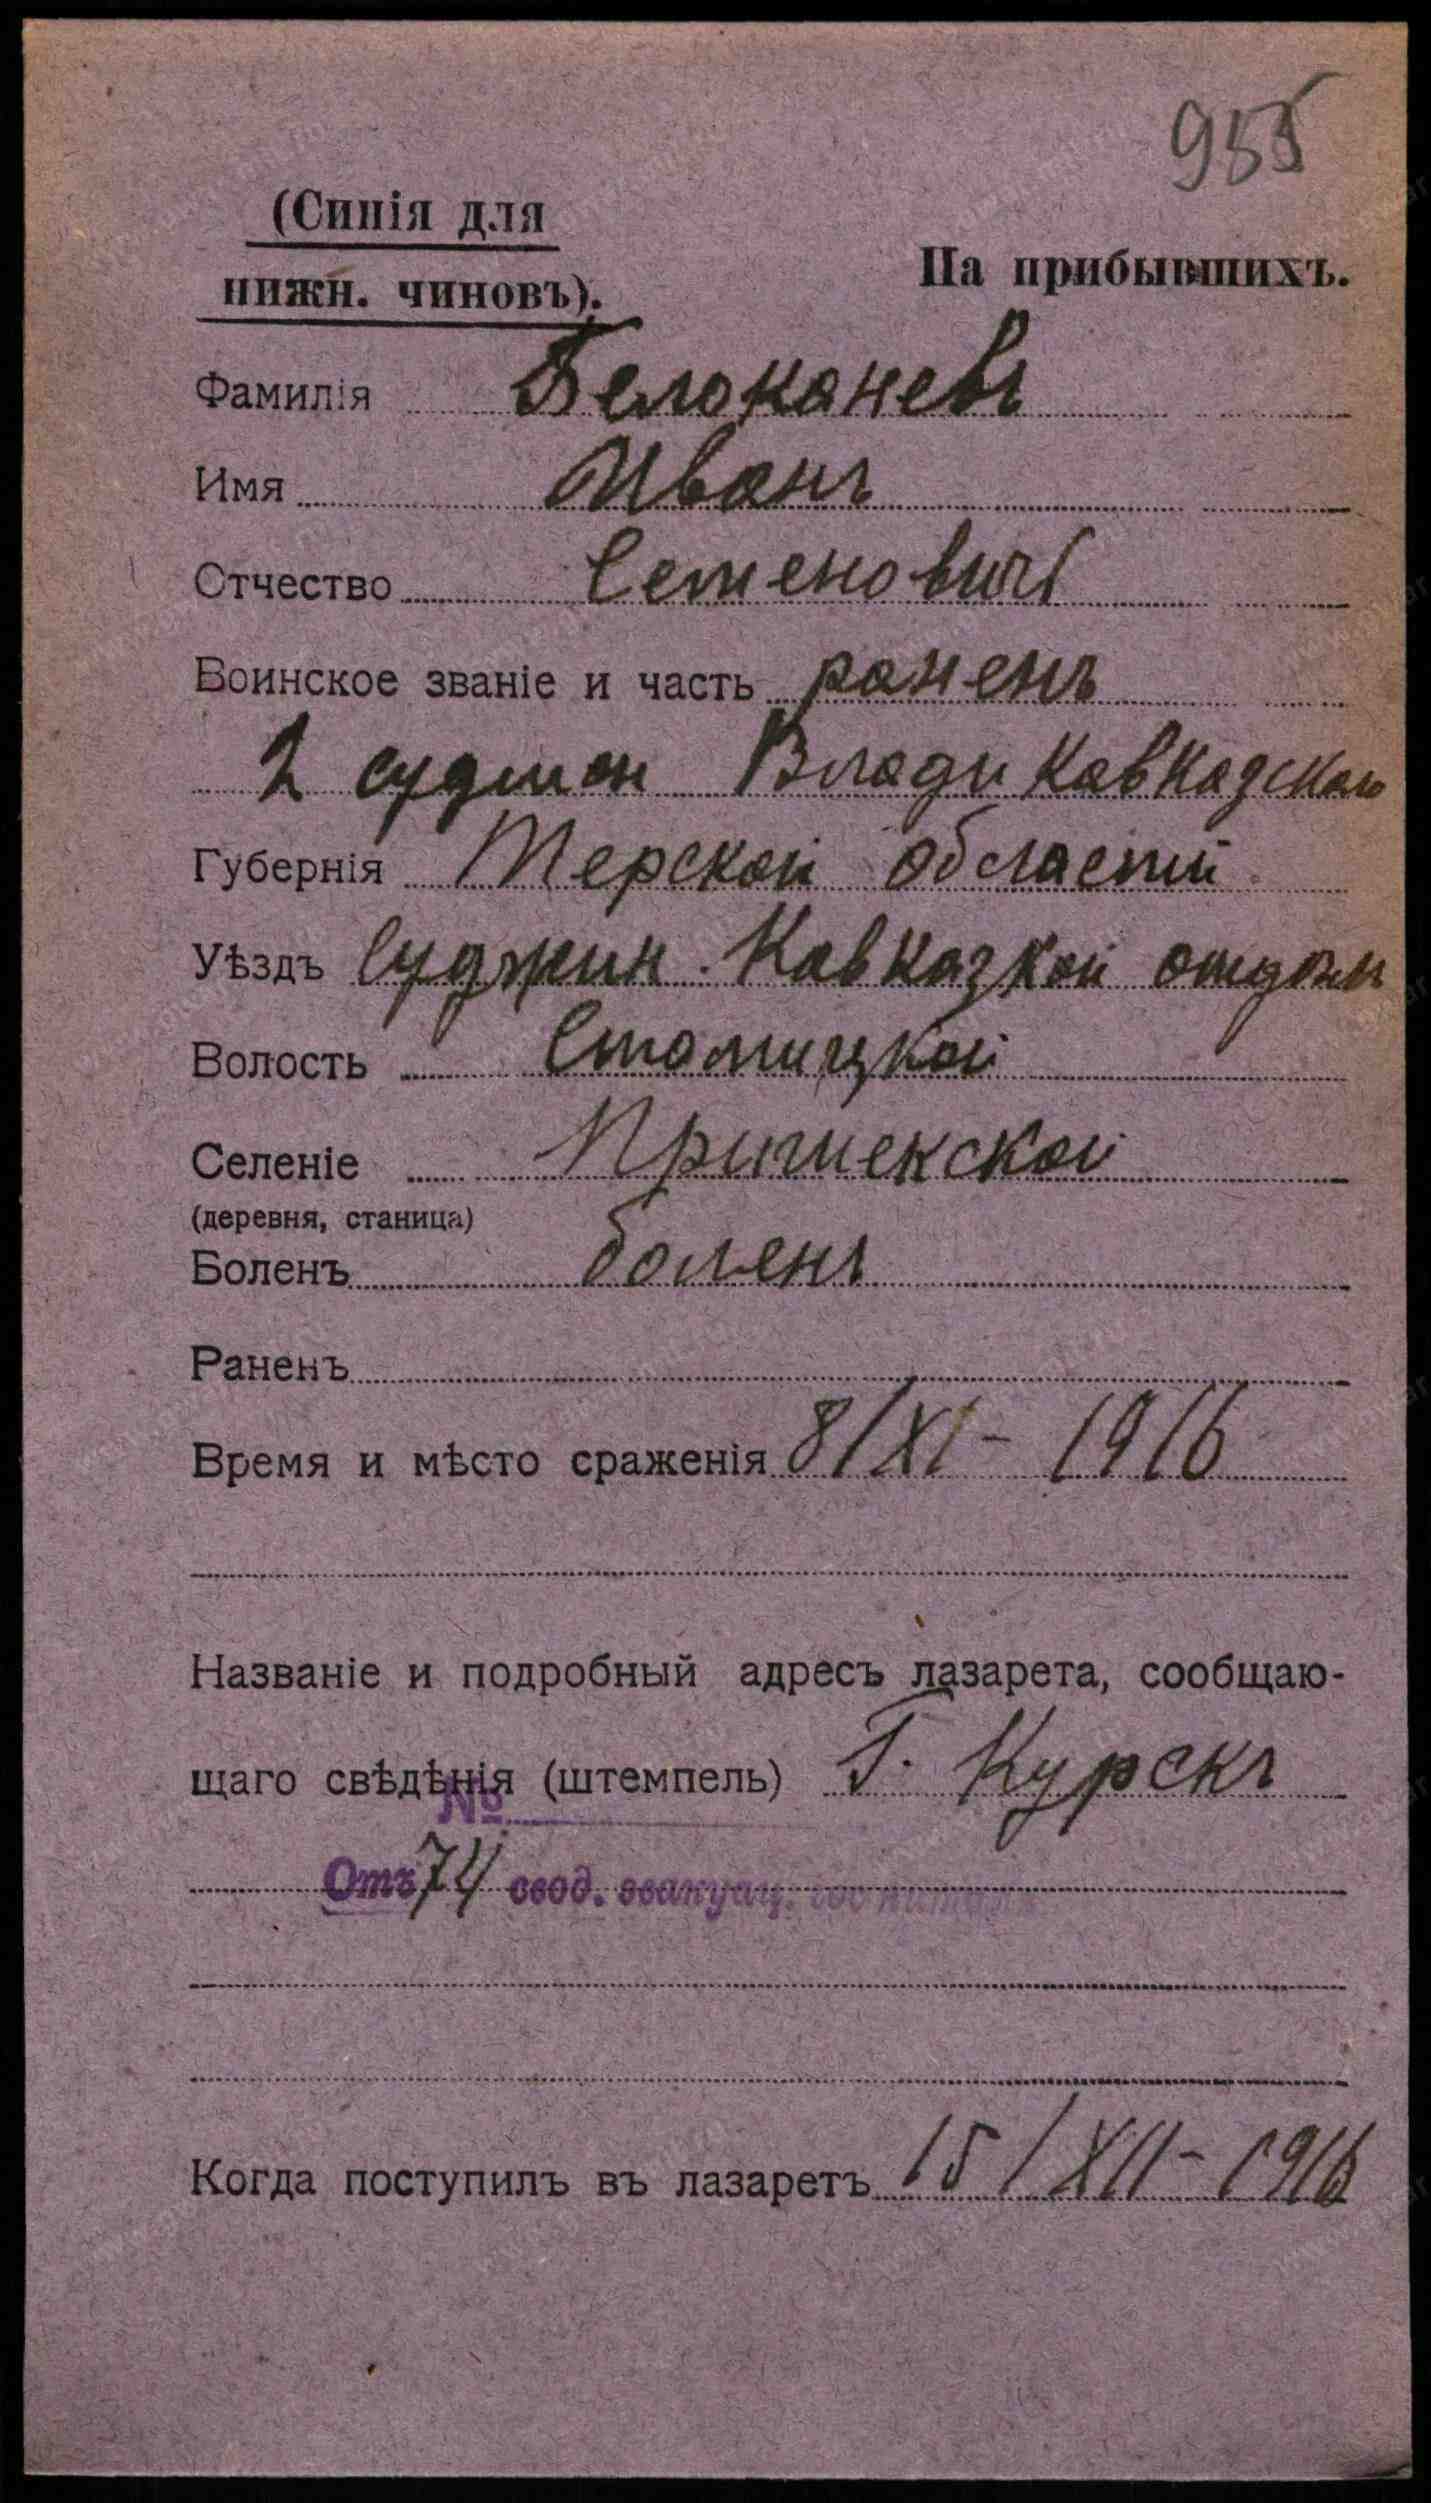 955
(Синія для
нижн. чиновъ).
На прибывшихъ.
Фамилія Белоканевъ
Имя Иванъ
Отчество Семеновичъ
Воинское званіе и часть раненъ
2 Владикавкадскаго
Губернія Терской области
Уѣздъ Суджин. Кавказкой отдѣлъ
Волость
Селеніе
(деревня, станица)
Боленъ боленъ
Раненъ
Время и мѣсто сраженія 8/XI – 1916
Названіе и подробный адресъ лазарета, сообщаю-
щаго свѣдѣнія (штемпель) Г. Курскъ
№
Отъ 74 свод. эвакуац. госпиталя
Когда поступилъ въ лазаретъ 15/XII – 1916